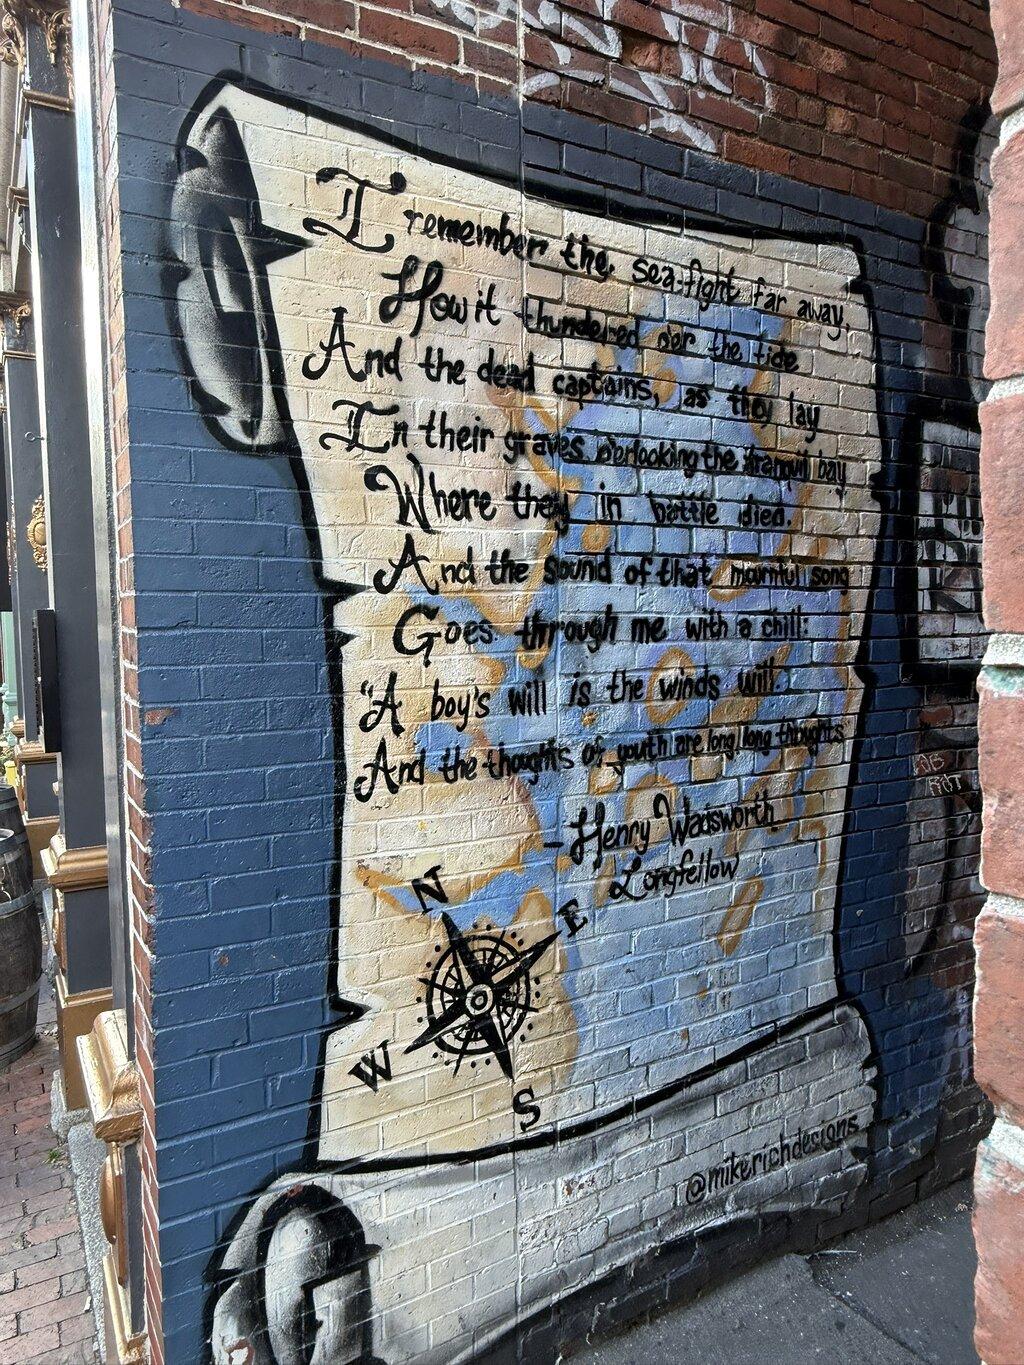 I remember the sea-fight far away,
How it thundered o'er the tide
And the dead captains, as they lay
In their graves o'erlooking the tranquil bay
Where they in battle died.
And the sound of that mournful song
Goes through me with a chill:
"A boy's will is the winds will.
And the thoughts of youth are long, long thoughts
-Henry Wadsworth
Longfellow
N
E
W
S
@mikerichdesigns